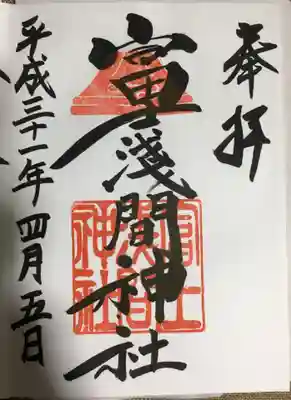 奉拝
冨士淺間神社
平成三十一年四月五日
冨士
浅間
神社